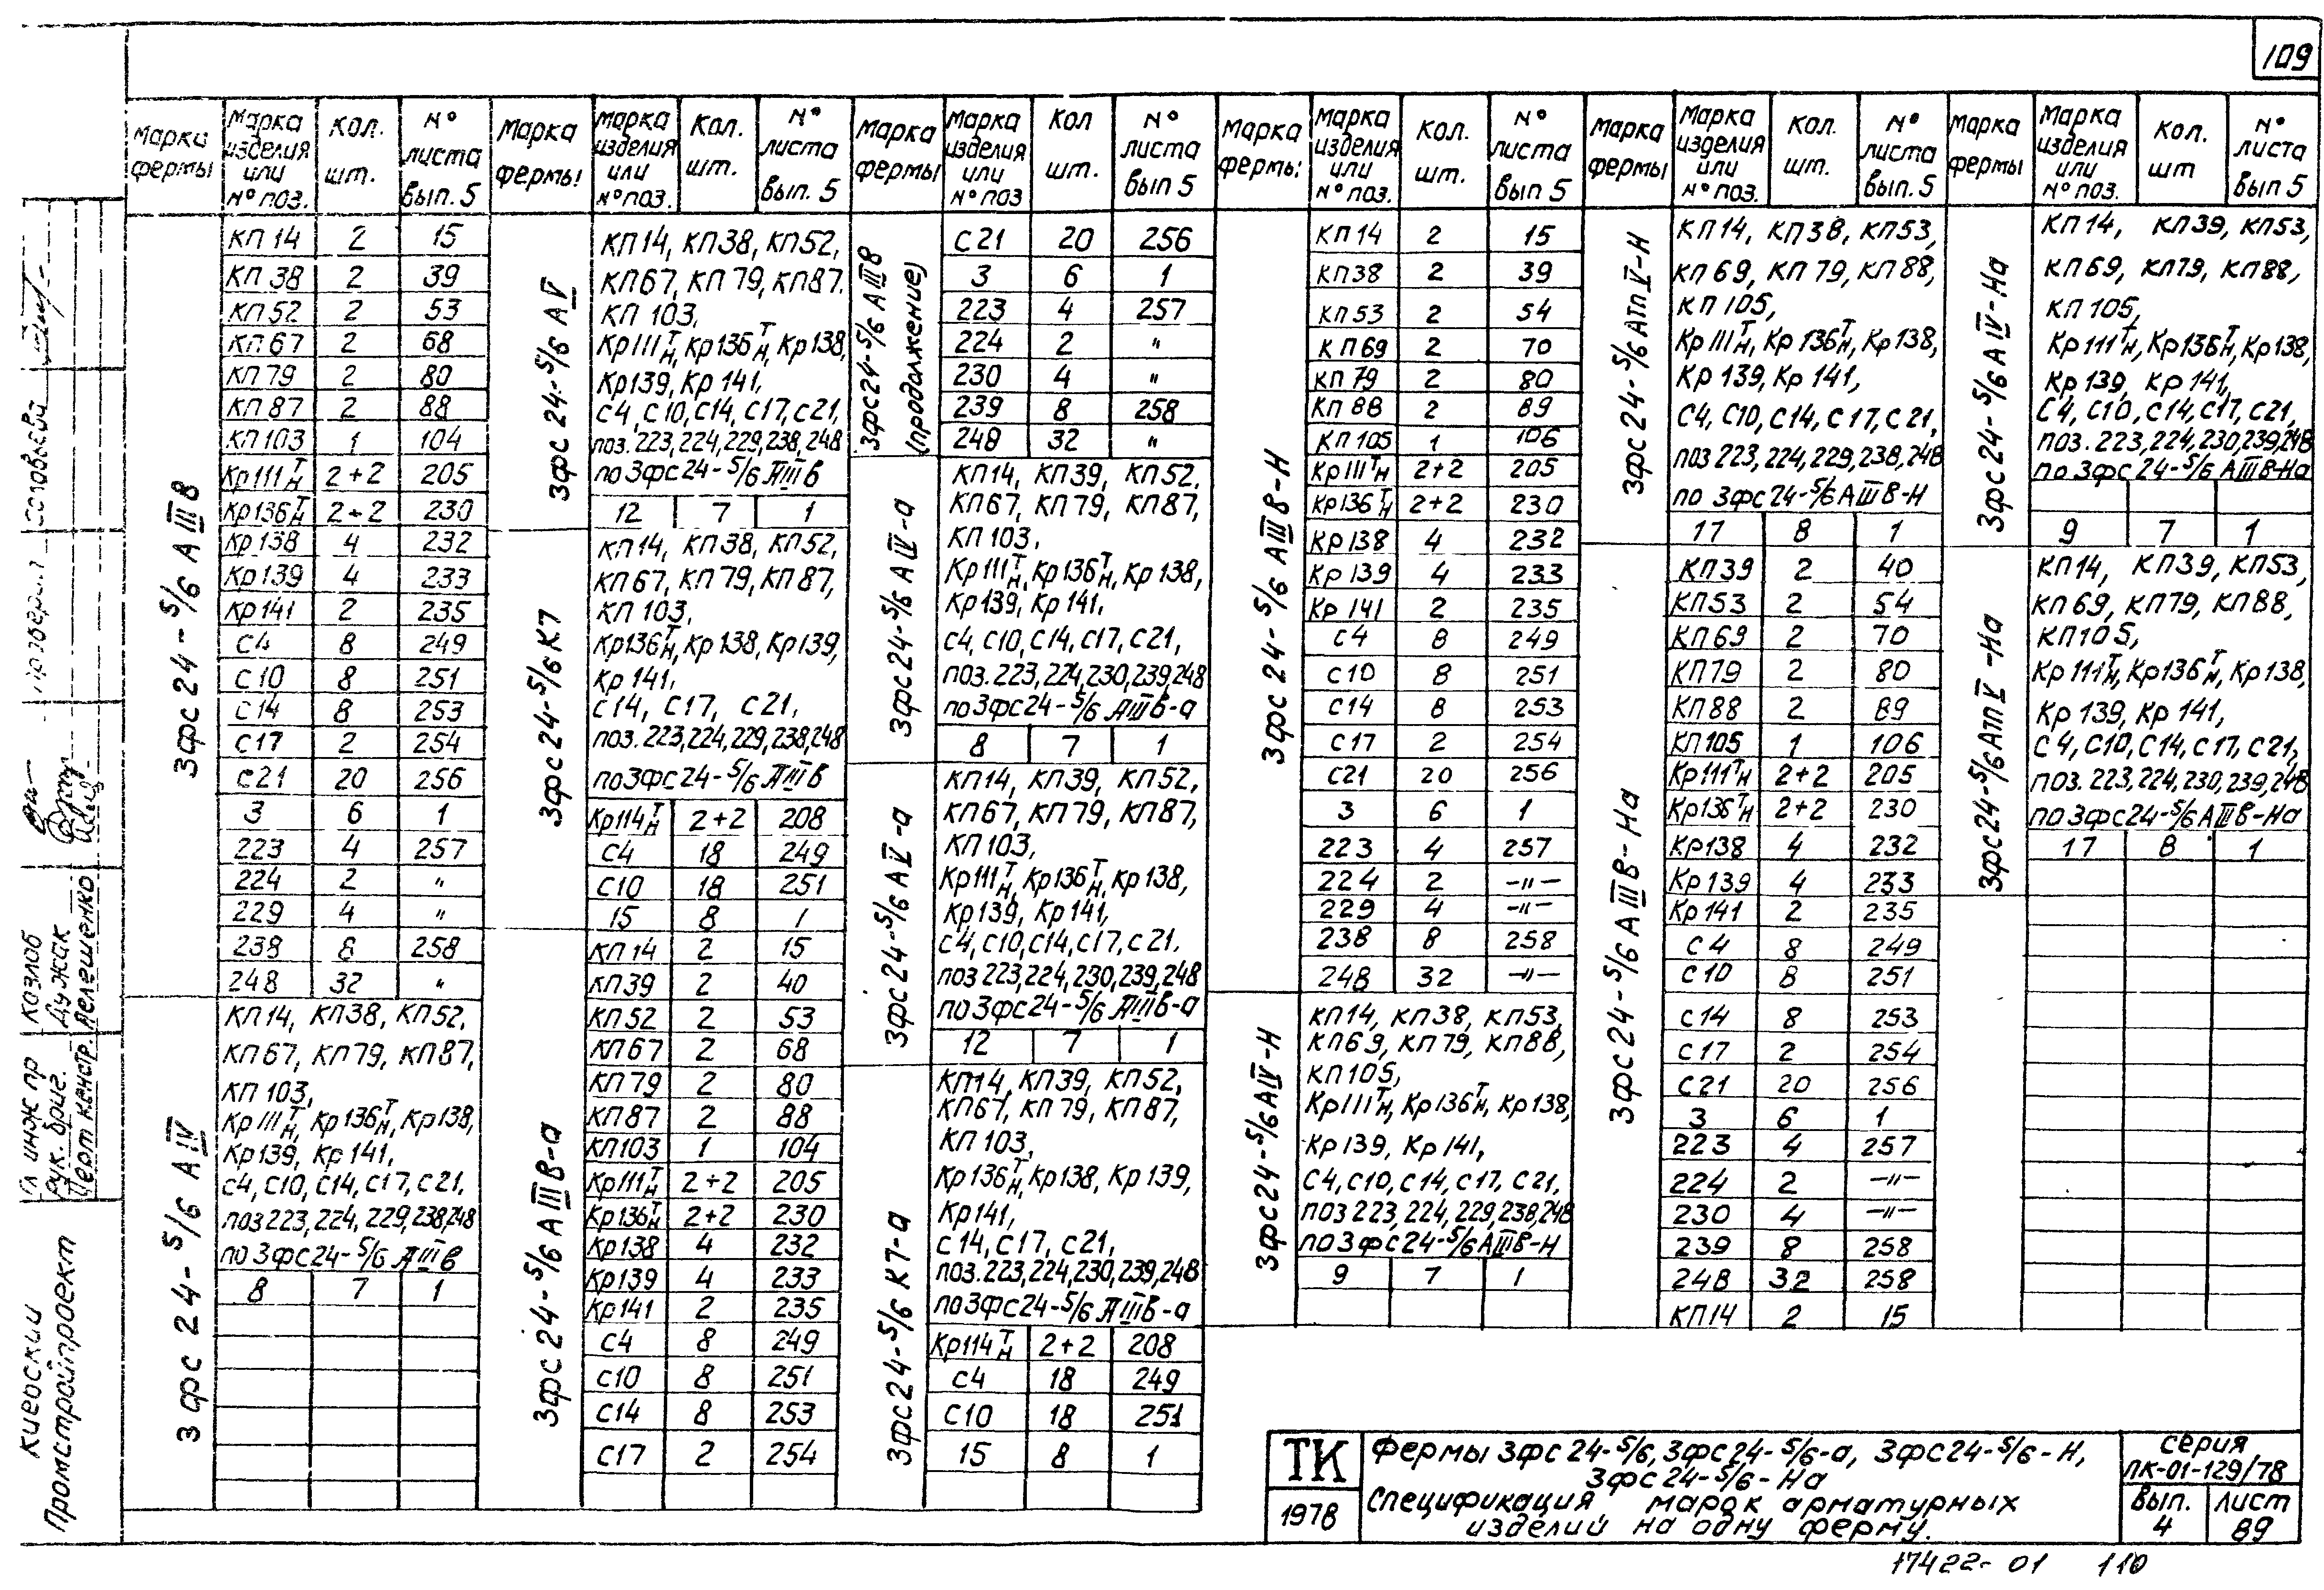 109
Марка фермы | Марка изделия или № поз. | Кол. шт. | № листа вып. 5
3фс 24-5/6 АIIIв
КП 14 2 15
КП 38 2 39
КП 52 2 53
КП 67 2 68
КП 79 2 80
КП 87 2 88
КП 103 1 104
Кр111 Т/Н 2+2 205
Кр136 Т/Н 2+2 230
Кр 138 4 232
Кр 139 4 233
Кр 141 2 235
С4 8 249
С10 8 251
С14 8 253
С17 2 254
С21 20 256
3 6 1
223 4 257
224 2 "
229 4 "
238 8 258
248 32 "
3фс 24-5/6 АIV
КП14, КП38, КП52,
КП67, КП79, КП87,
КП 103,
Кр111 Т/Н, Кр136 Т/Н, Кр138,
Кр139, Кр 141,
С4, С10, С14, С17, С21,
поз 223, 224, 229, 238, 248
по 3фс 24-5/6 АIIIв
8 7 1
Марка фермы | Марка изделия или № поз. | Кол. шт. | № листа вып. 5
3фс 24-5/6 АV
КП14, КП38, КП52,
КП67, КП79, КП87.
КП 103,
Кр111 Т/Н, Кр136 Т/Н, Кр138,
Кр139, Кр 141,
С4, С10, С14, С17, С21,
поз. 223, 224, 229, 238, 248
по 3фс 24-5/6 АIIIв
12 7 1
3фс 24-5/6 К7
КП14, КП38, КП52,
КП67, КП79, КП87,
КП 103,
Кр136 Т/Н, Кр 138, Кр139,
Кр 141,
С14, С17, С21,
поз. 223, 224, 229, 238, 248
по 3фс 24-5/6 АIIIв
Кр114 Т/Н 2+2 208
С4 18 249
С10 18 251
15 8 1
3фс 24-5/6 АIIIв-а
КП 14 2 15
КП39 2 40
КП52 2 53
КП67 2 68
КП79 2 80
КП87 2 88
КП103 1 104
Кр111 Т/Н 2+2 205
Кр136 Т/Н 2+2 230
Кр138 4 232
Кр139 4 233
Кр141 2 235
С4 8 249
С10 8 251
С14 8 253
С17 2 254
Марка фермы | Марка изделия или № поз | Кол шт. | № листа вып 5
3фс24-5/6 АIIIв (продолжение)
С21 20 256
3 6 1
223 4 257
224 2 "
230 4 "
239 8 258
248 32 "
3фс 24-5/6 АIV-а
КП14, КП39, КП52,
КП67, КП79, КП87,
КП 103,
Кр111 Т/Н, Кр136 Т/Н, Кр 138,
Кр139, Кр 141,
С4, С10, С14, С17, С21,
поз. 223, 224, 230, 239, 248
по 3фс24-5/6 АIIIв-а
8 7 1
3фс 24-5/6 АV-а
КП14, КП39, КП52,
КП67, КП79, КП87,
КП103,
Кр111 Т/Н, Кр136 Т/Н, Кр138,
Кр139, Кр141,
С4, С10, С14, С17, С21.
поз 223, 224, 230, 239, 248
по 3фс 24-5/6 АIIIв-а
12 7 1
3фс24-5/6 К7-а
КП14, КП39, КП52,
КП67, КП79, КП87,
КП 103,
Кр136 Т/Н, Кр138, Кр139,
Кр141,
С14, С17, С21,
поз. 223, 224, 230, 239, 248
по 3фс24-5/6 АIIIв-а
Кр114 Т/Н 2+2 208
С4 18 249
С10 18 251
15 8 1
Марка фермы | Марка изделия или № поз. | Кол. шт. | № листа вып 5
3фс 24-5/6 АIIIв-Н
КП 14 2 15
КП38 2 39
КП 53 2 54
КП69 2 70
КП 79 2 80
КП 88 2 89
КП 105 1 106
Кр111 Т/Н 2+2 205
Кр136 Т/Н 2+2 230
Кр138 4 232
Кр 139 4 233
Кр 141 2 235
С4 8 249
С10 8 251
С14 8 253
С17 2 254
С21 20 256
3 6 1
223 4 257
224 2 -"-
229 4 -"-
238 8 258
248 32 -"-
3фс24-5/6 АIV-Н
КП14, КП38, КП53,
КП69, КП79, КП88,
КП105,
Кр111 Т/Н, Кр136 Т/Н, Кр138,
Кр139, Кр141,
С4, С10, С14, С17, С21,
поз 223, 224, 229, 238, 248
по 3фс24-5/6 АIIIв-Н
9 7 1
Марка фермы | Марка изделия или № поз. | Кол. шт. | № листа вып. 5
3фс 24-5/6 АтпV-Н
КП14, КП38, КП53,
КП 69, КП 79, КП88,
КП 105,
Кр111 Т/Н, Кр136 Т/Н, Кр138,
Кр 139, Кр 141,
С4, С10, С14, С17, С21,
поз 223, 224, 229, 238, 248
по 3фс24-5/6 АIIIв-Н
17 8 1
3фс 24-5/6 АIIIв-На
КП39 2 40
КП53 2 54
КП69 2 70
КП79 2 80
КП88 2 89
КП105 1 106
Кр111 Т/Н 2+2 205
Кр136 Т/Н 2+2 230
Кр138 4 232
Кр139 4 233
Кр141 2 235
С4 8 249
С10 8 251
С14 8 253
С17 2 254
С21 20 256
3 6 1
223 4 257
224 2 -"-
230 4 -"-
239 8 258
248 32 258
КП14 2 15
Марка фермы | Марка изделия или № поз. | Кол. шт | № листа вып 5
3фс24-5/6 АIV-На
КП14, КП39, КП53,
КП69, КП79, КП88,
КП 105,
Кр111 Т/Н, Кр136 Т/Н, Кр138,
Кр 139, Кр 141,
С4, С10, С14, С17, С21,
поз. 223, 224, 230, 239, 248
по 3фс 24-5/6 АIIIв-На
9 7 1
3фс24-5/6 АтпV-На
КП14, КП39, КП53,
КП 69, КП79, КП88,
КП105,
Кр111 Т/Н, Кр136 Т/Н, Кр138,
Кр 139, Кр 141,
С4, С10, С14, С17, С21,
поз. 223, 224, 230, 239, 248
по 3фс24-5/6 АIIIв-На
17 8 1
проверил
Гл инж пр Козлов
Рук. бриг. Дужак
Черт констр. Пелешенко
Киевский
Промстройпроект
ТК
1978
Фермы 3фс 24-5/6, 3фс 24-5/6-а, 3фс24-5/6-Н,
3фс 24-5/6-На
Спецификация марок арматурных
изделий на одну ферму.
серия
ПК-01-129/78
Вып. 4
лист 89
17422-01 110